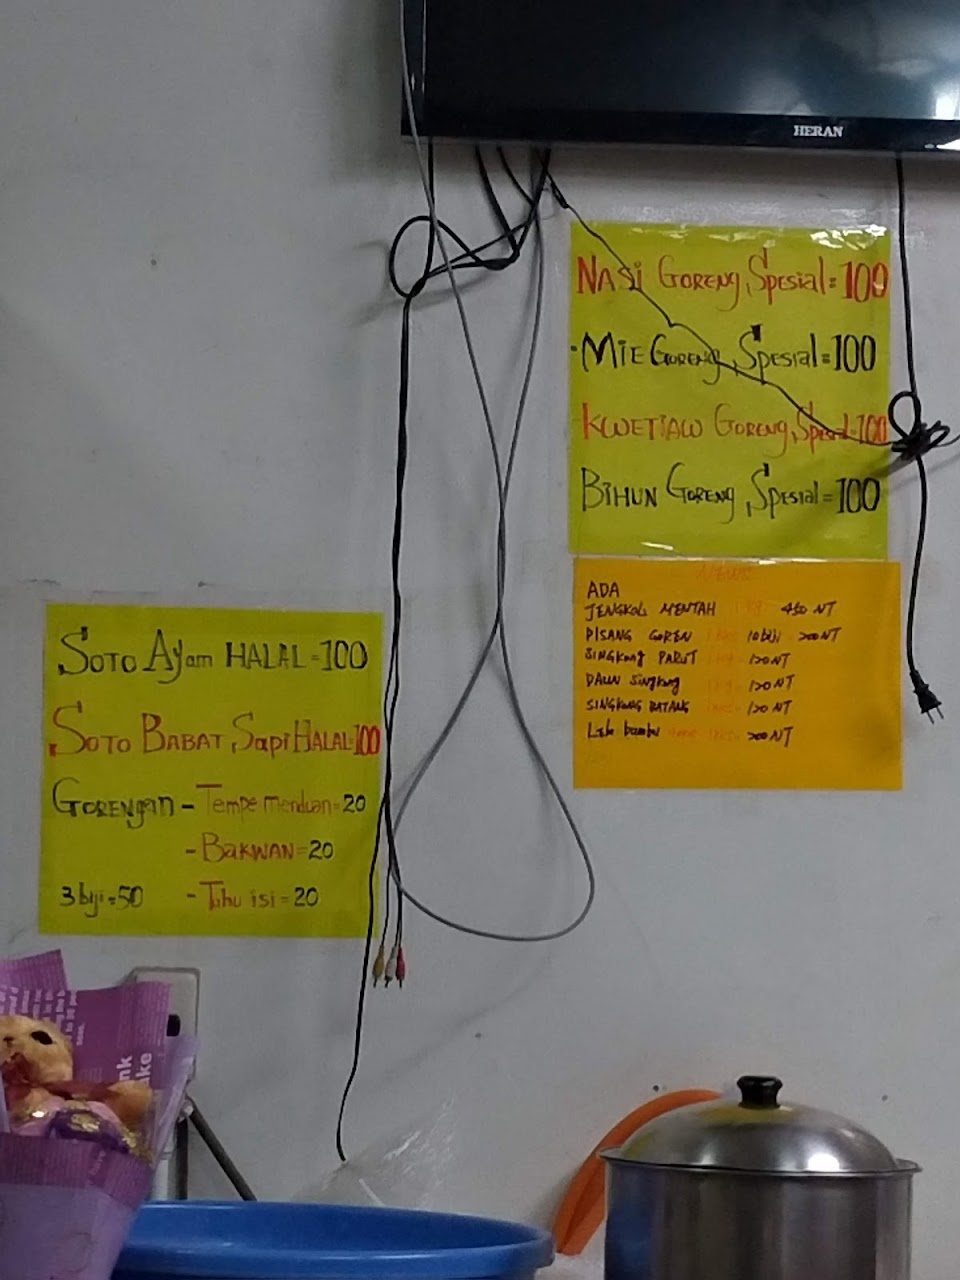 HERAN
NASI GORENG, Spesial=100
-MIE GORENG, Spesial=100
KWETIAW GORENG, Spesial=100
BIHUN GORENG, Spesial=100
NEWS
ADA
JENGKOL MENTAH 450 NT
PISANG GOREN 10 biji 200NT
SINGKONG PARUT 120 NT
DAUN SINGKONG 120 NT
SINGKONG BATANG 120 NT
200 NT
SOTO Ayam HALAL=100
SOTO BABAT Sapi HALAL=100
GORENgan - Tempe menduan=20
- BAKWAN=20
3 biji=50 - Tahu isi=20